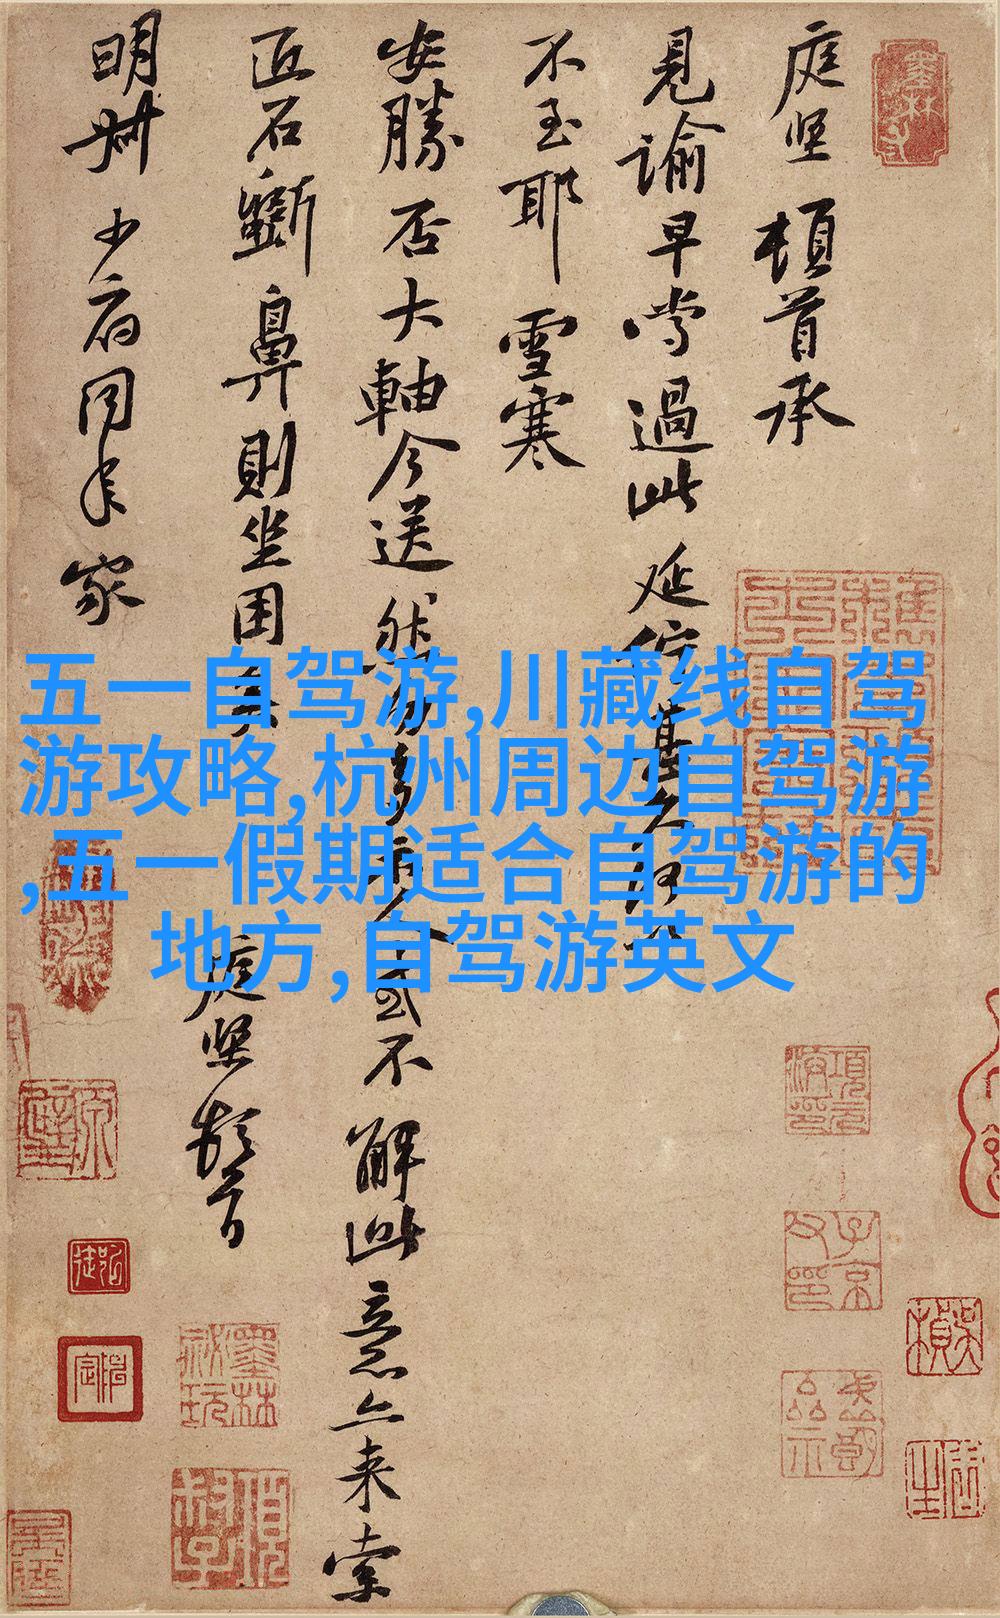 庭堅頓首承
見諭早嘗過此延佇甚久何以
不至耶雪寒
安勝否大軸今送然勿多示人或不解此意亦來索
匠石斲鼻則坐困矣庭堅頓首
明叔少府同年家
五一自驾游,川藏线自驾
游攻略,杭州周边自驾游
,五一假期适合自驾游的
地方,自驾游英文